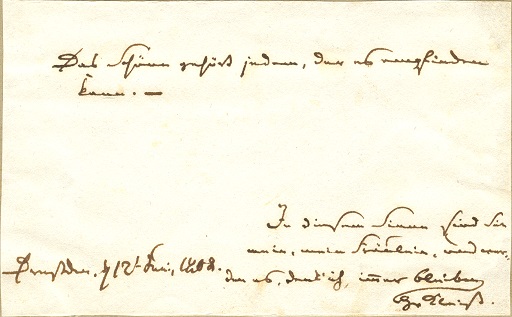 Das Schöne gehört jedem, der es empfinden
kann. —
In diesem Sinne sind Sie
mein, mein Fräulein, und wer-
den es, denk' ich, immer bleiben
Dresden, d 12t Juni, 1808.